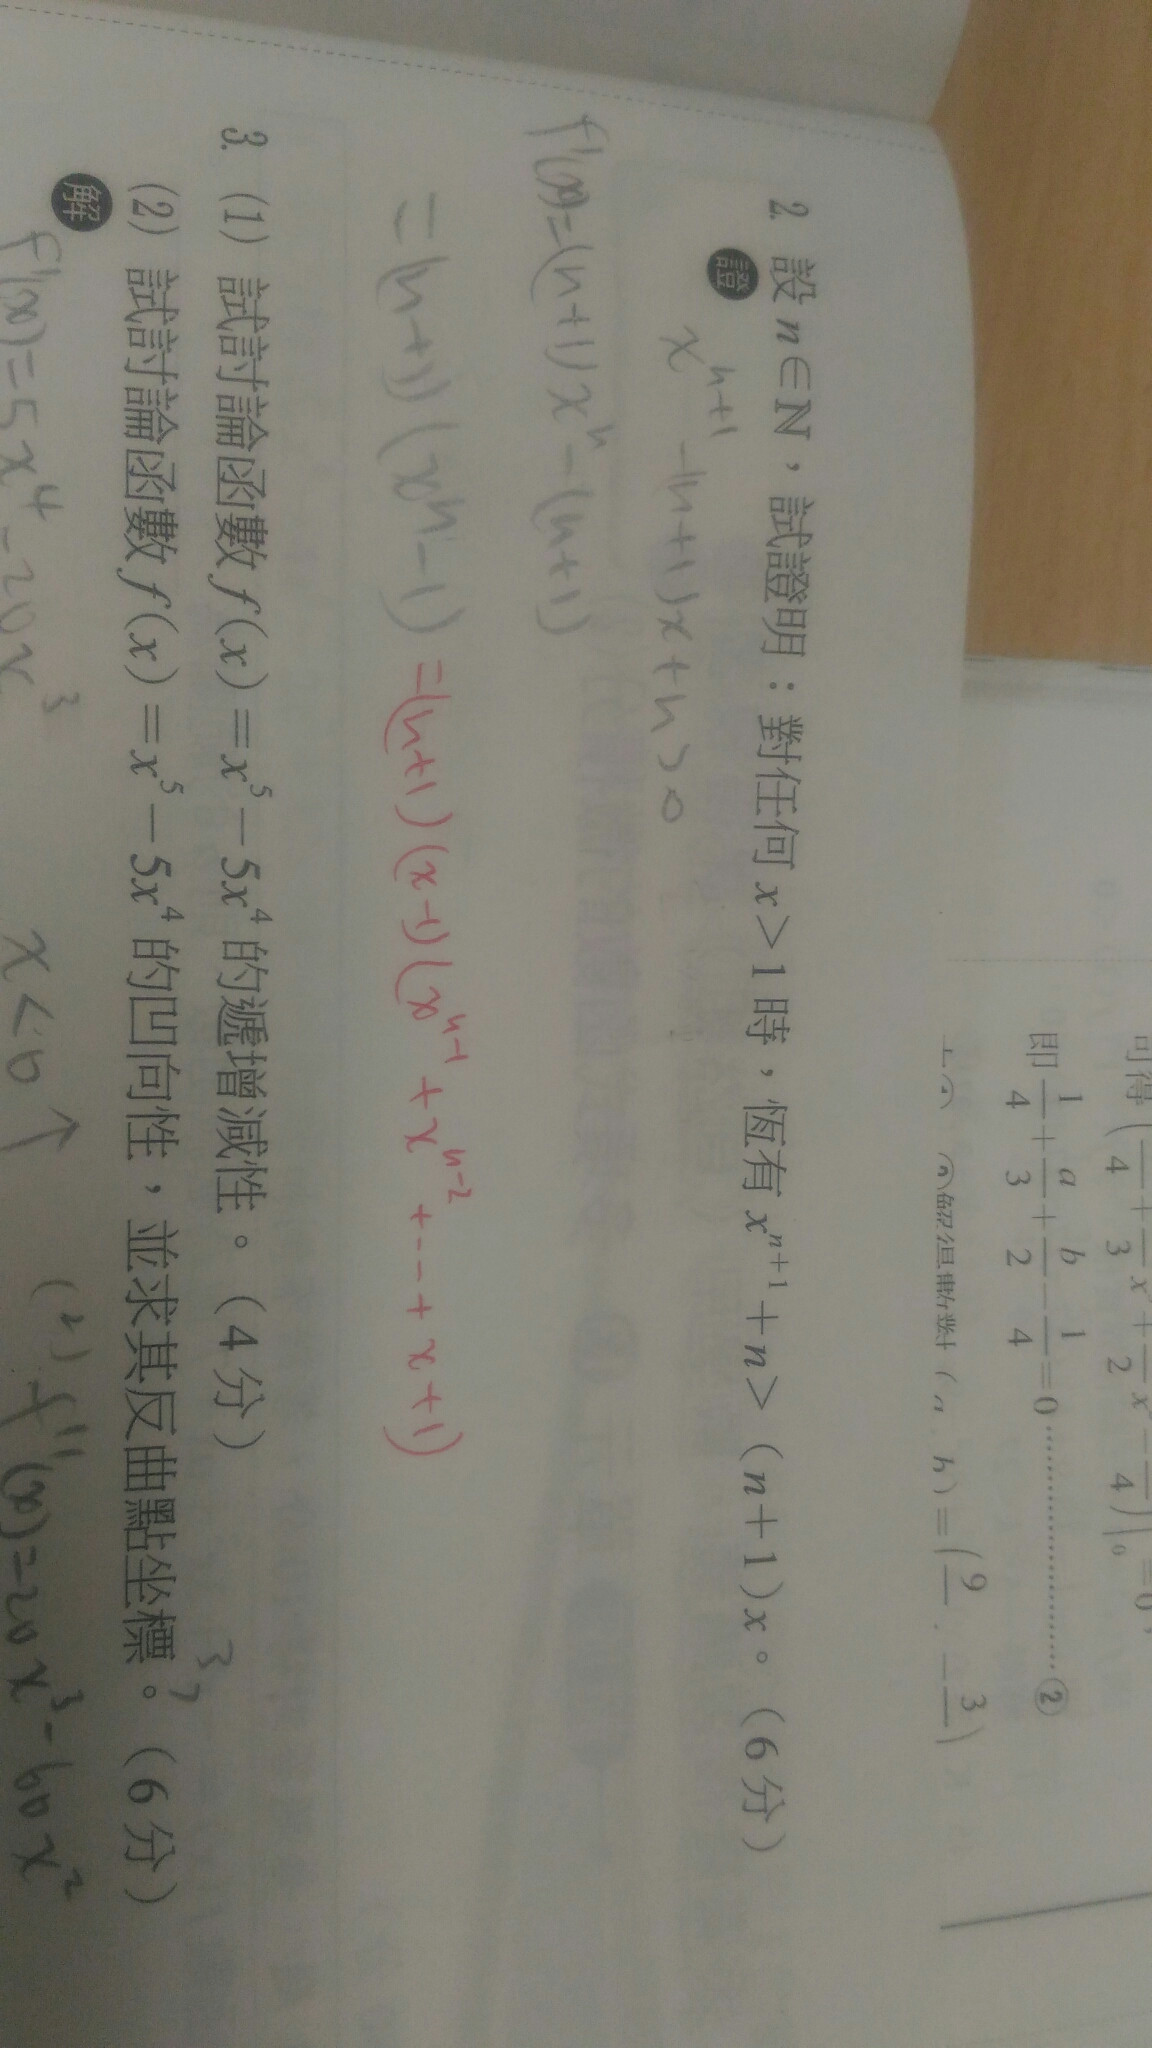 可得
即1/4+a/3+b/2−1/4=0……………………②
2. 設n∈ℕ，試證明：對任何x>1時，恆有xⁿ⁺¹+n>（n+1）x。（6分）
證
xⁿ⁺¹-(n+1)x+n>0
f'(x)=(n+1)xⁿ-(n+1)
=(n+1)(xⁿ-1)=(n+1)(x-1)(xⁿ⁻¹+xⁿ⁻²+---+x+1)
3. (1) 試討論函數f(x)=x⁵−5x⁴的遞增減性。（4分）
(2) 試討論函數f(x)=x⁵−5x⁴的凹向性，並求其反曲點坐標。（6分）
解
f'(x)=5x⁴-20x³
x<0↑
(2) f''(x)=20x³-60x²